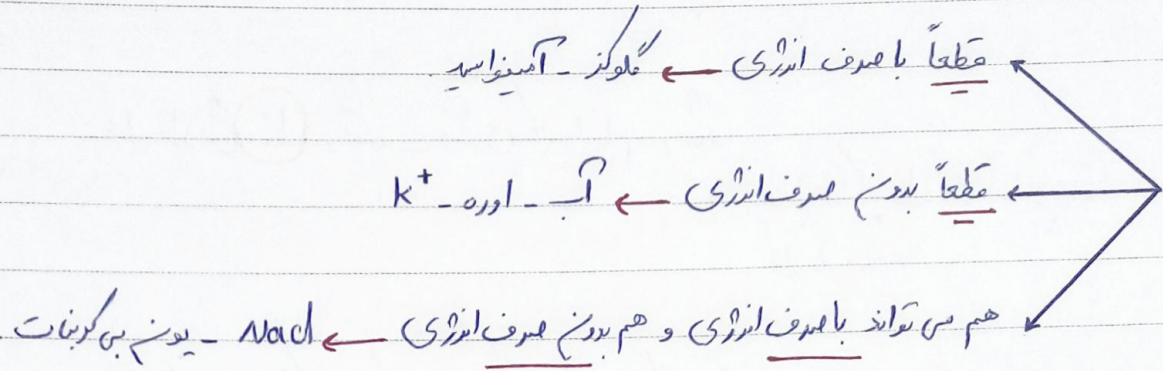 قطعاً با صرف انرژی ← گلوکز - آمینواسید
قطعاً بدون صرف انرژی ← آب - اوره - K⁺
هم می تواند با صرف انرژی و هم بدون صرف انرژی ← Nacl - یون بی کربنات.